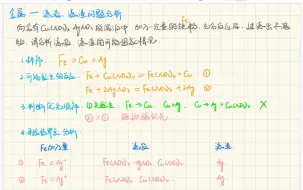 金属 — 滤液、滤渣问题分析
Fe
向含有 Cu(NO₃)₂ AgNO₃ 的溶液中加入一定量的铁粉,充分反应后,过滤出不溶物,请分析滤液、滤渣的可能组成情况。
1. 排序 Fe > Cu > Ag
2. 可能发生的反应 Fe + Cu(NO₃)₂ = Fe(NO₃)₂ + Cu ①
Fe + 2AgNO₃ = Fe(NO₃)₂ + 2Ag ②
3. 判断优先顺序 ①先发生 Fe → Cu Cu + Ag Cu → Ag + Cu(NO₃)₂ X
② > ①
4. 分析
Fe加入量 滤液 滤渣
① Fe < Ag⁺ Fe(NO₃)₂ AgNO₃ Cu(NO₃)₂ Ag
② Fe = Ag⁺ Fe(NO₃)₂ Cu(NO₃)₂ Ag